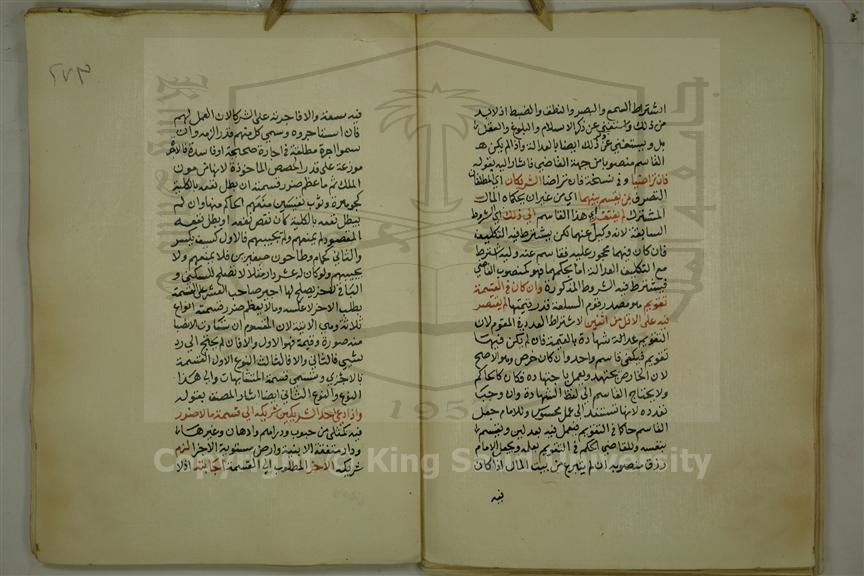 اشتراط السمع والبصر والنطق والضبط اذ لابد
من ذلك واستغني عن ذكر الاسلام والبلوغ والعقل
بل ويستغنى عن ذلك ايضا بالعدالة واذا لم يكن هـ
القاسم منصوبا من جهة القاضي فاشار اليه بقوله
فان تراضيا وفي نسخة فان تراضا الشريكان اي المطلقان
التصرف بمن يقسم بينهما اي من غير ان يحكماه المال
المشترك لم يفتقر اي هذا القاسم الى ذلك اي الشروط
السابقة لانه وكيل عنهما لكن يشترط فيه التكليف
فان كان فيهما محجور عليه فقاسم عنه وليه اشترط
مع التكليف العدالة اما محكمهما فهو كمنصوب القاضي
فيشترط فيه الشروط المذكورة وان كان في القسمة
تقويم هو مصدر قوم السلعة قدر قيمتها لم يقتصر
فيه على الاقل من اثنين لاشتراط العدد في المقوم لان
التقويم شهادة بالقيمة فان لم يكن فيها
تقويم فيكفي قاسم واحد وان كان خرص وهو الاصح
لان الخارص يجتهد ويعمل باجتهاده فكان كالحاكم
ولا يحتاج القاسم الى لفظ الشهادة وان وجب
تعدده لانها تستند الى عمل محسوس وللامام جعل
القاسم حاكما في التقويم فيعمل فيه بعدلين ويقسم
بنفسه وللقاضي الحكم في التقويم بعلمه ويجعل الامام
رزق منصوبه ان لم يتبرع من بيت المال اذا كان
فيه
٢٧٣
فيه سعة والا فاجرته على الشركا لان العمل لهم
فان استاجروه وسمى كل منهم قدرا لزمه وان
سموا اجرة مطلقة في اجارة صحيحة او فاسدة فالاجرة
موزعة على قدر الحصص الماخوذة لانها من مون
الملك ثم ما عظم ضرر قسمته ان بطل نفعه بالكلية
كجوهرة وثوب نفيسين منعهم الحاكم منها وان لم
يبطل نفعه بالكلية كان نقص نفعه او بطل نفعه
المقصود لم يمنعهم ولم يجيبهم فالاول كسيف يكسر
والثاني كحمام وطاحون صغيرين فلا يمنعهم ولا
يجيبهم ولو كان له عشر دار مثلا لا يصلح للسكنى و
الباقي لاخر يصلح لها اجبر صاحب العشر على القسمة
بطلب الاخر لا عكسه وما لا يعظم ضرر قسمته انواع
ثلاثة وهي الاتية لان المقسوم ان تساوت الانصبا
منه صورة وقيمة فهو الاول والا فان لم يحتج الى رد
شيي فالثاني والا فالثالث النوع الاول القسمة
بالاجزا وتسمى قسمة المتشابهات والى هذا
النوع والنوع الثاني ايضا اشار المصنف بقوله
واذا دعى احد الشريكين شريكه الى قسمة ما لا ضرر
فيه كمثلي من حبوب ودراهم وادهان وغيرها
ودار متفقة الابنية وارض مستوية الاجزا لزم
شريكه الاخر المطلوب الى القسمة اجابته اذ لا
Copyright © King Saud University
1957